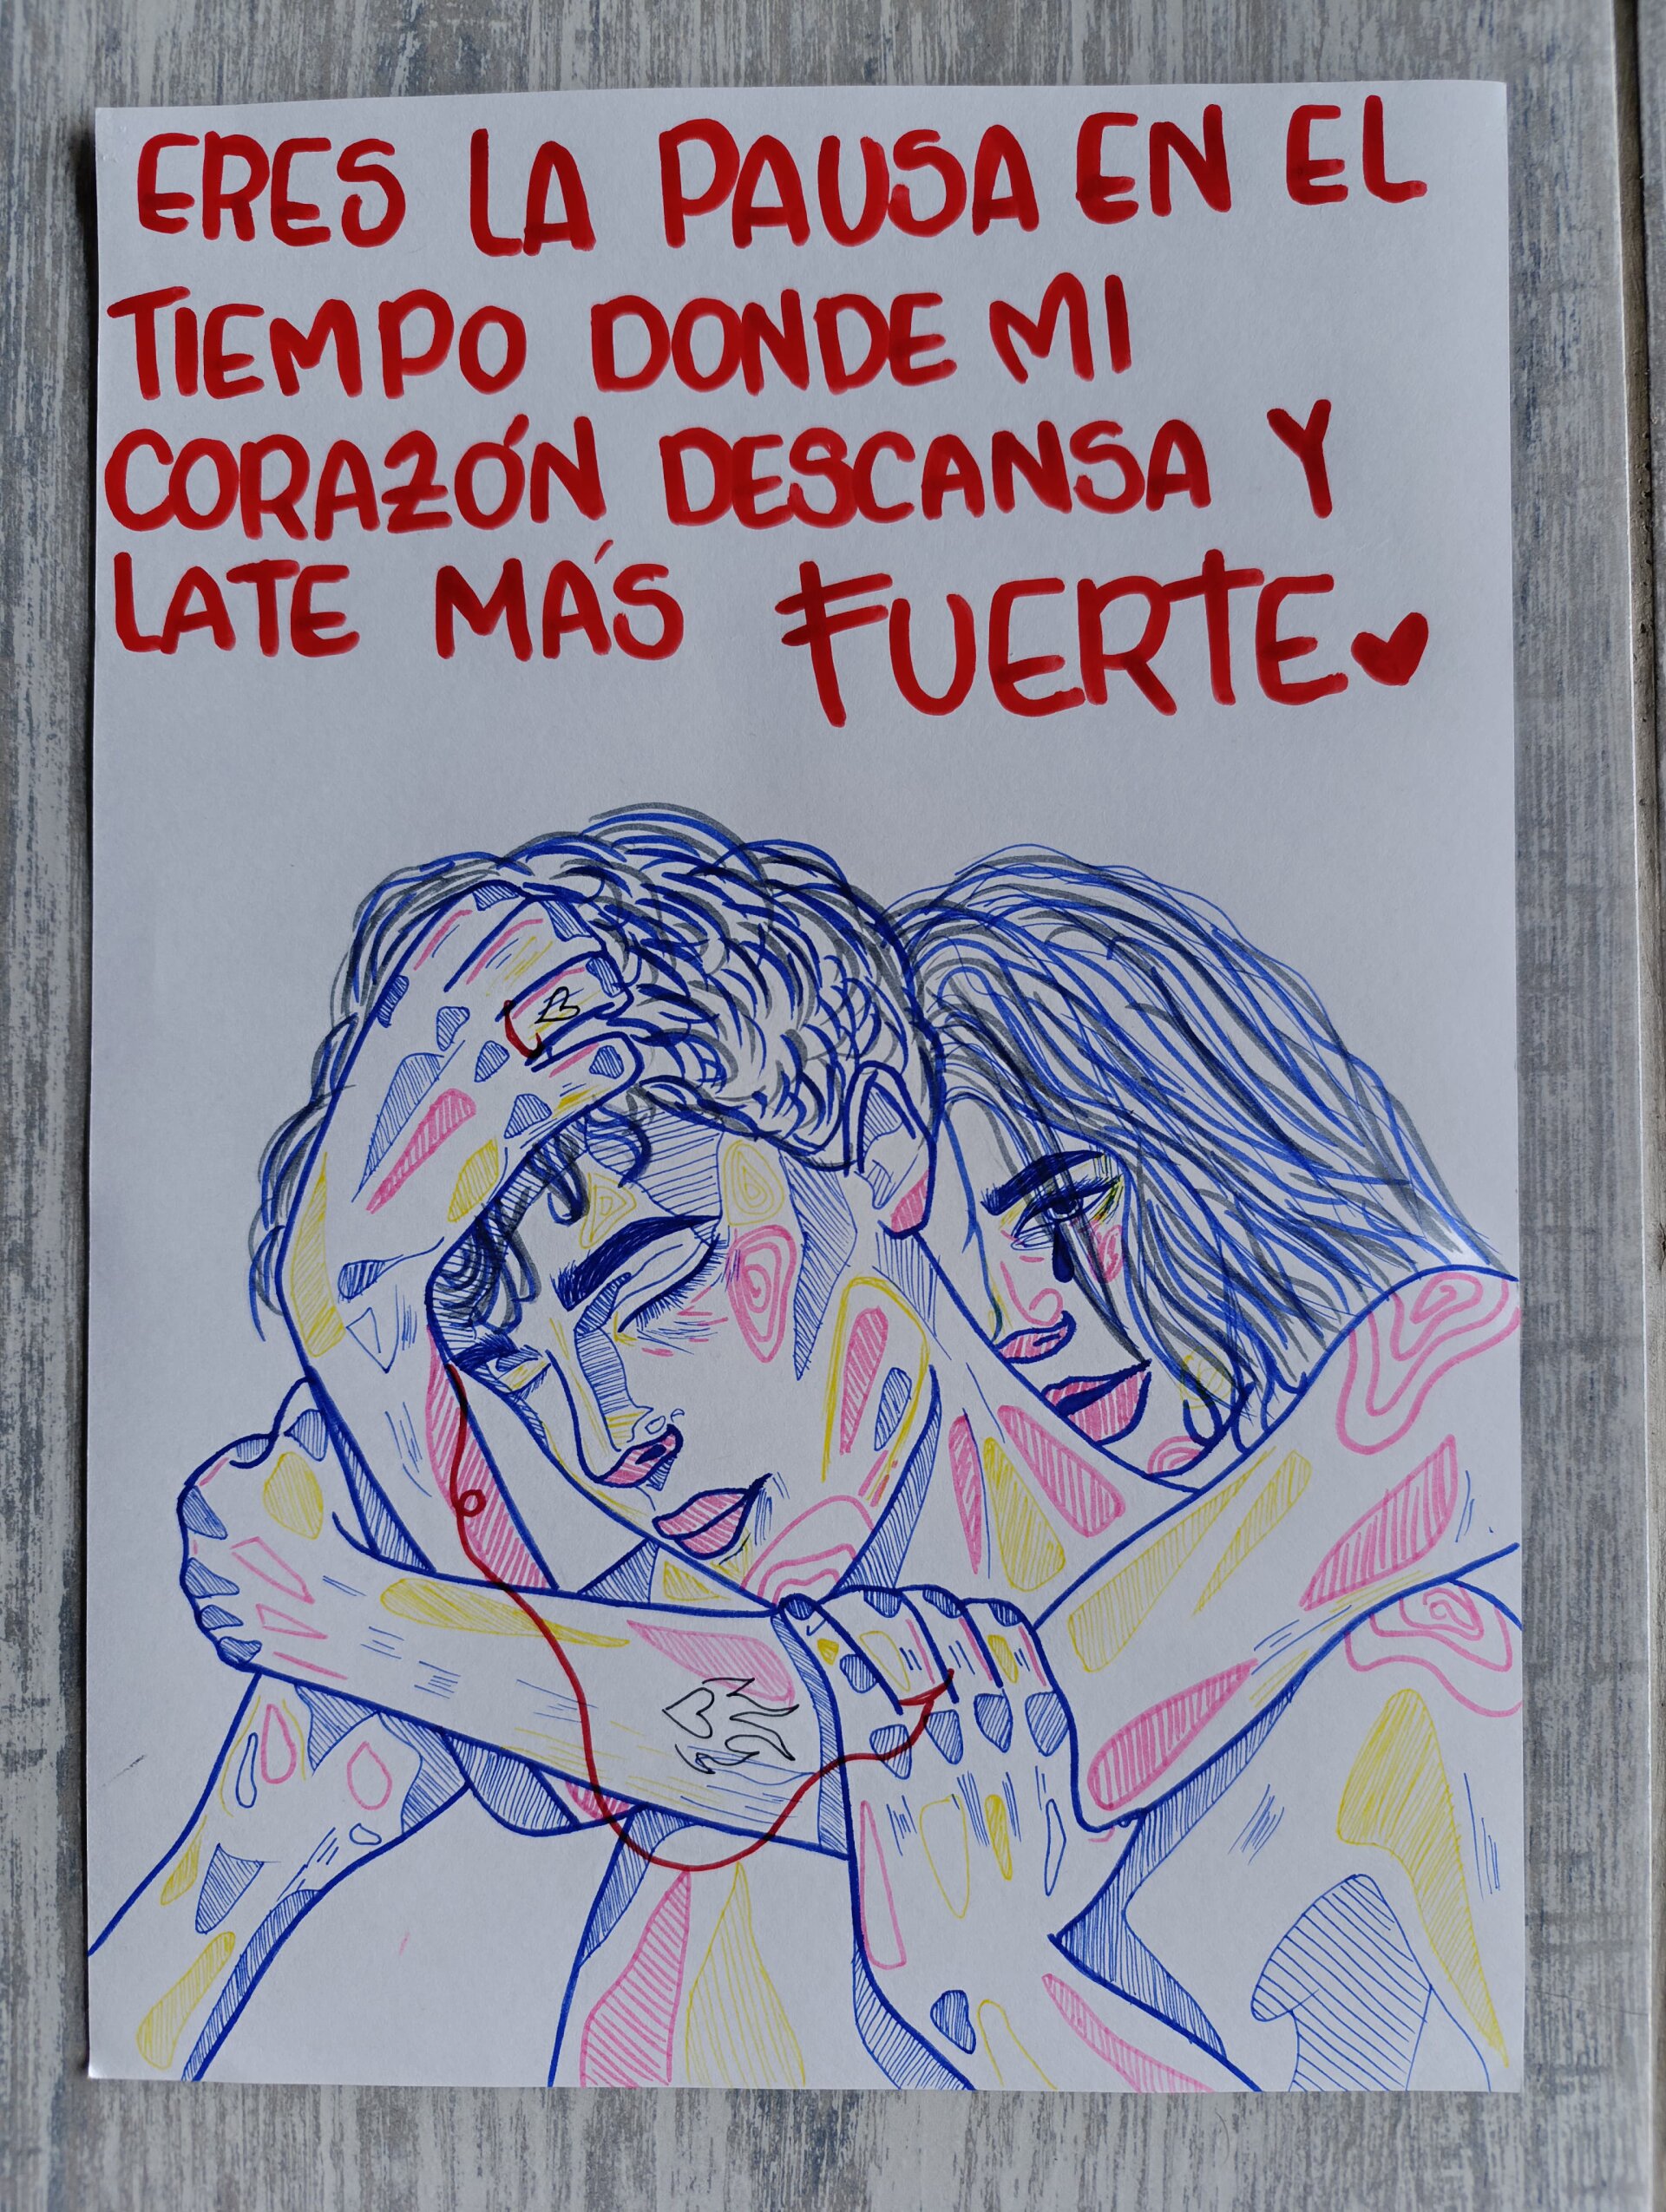 ERES LA PAUSA EN EL
TIEMPO DONDE MI
CORAZÓN DESCANSA Y
LATE MÁS FUERTE